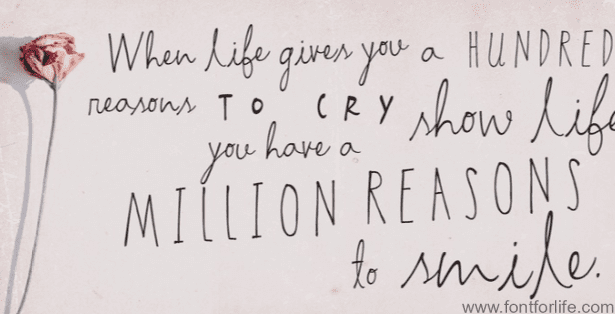 When life gives you a HUNDRED
reasons TO CRY show life
you have a
MILLION REASONS
to smile.
www.fontforlife.com